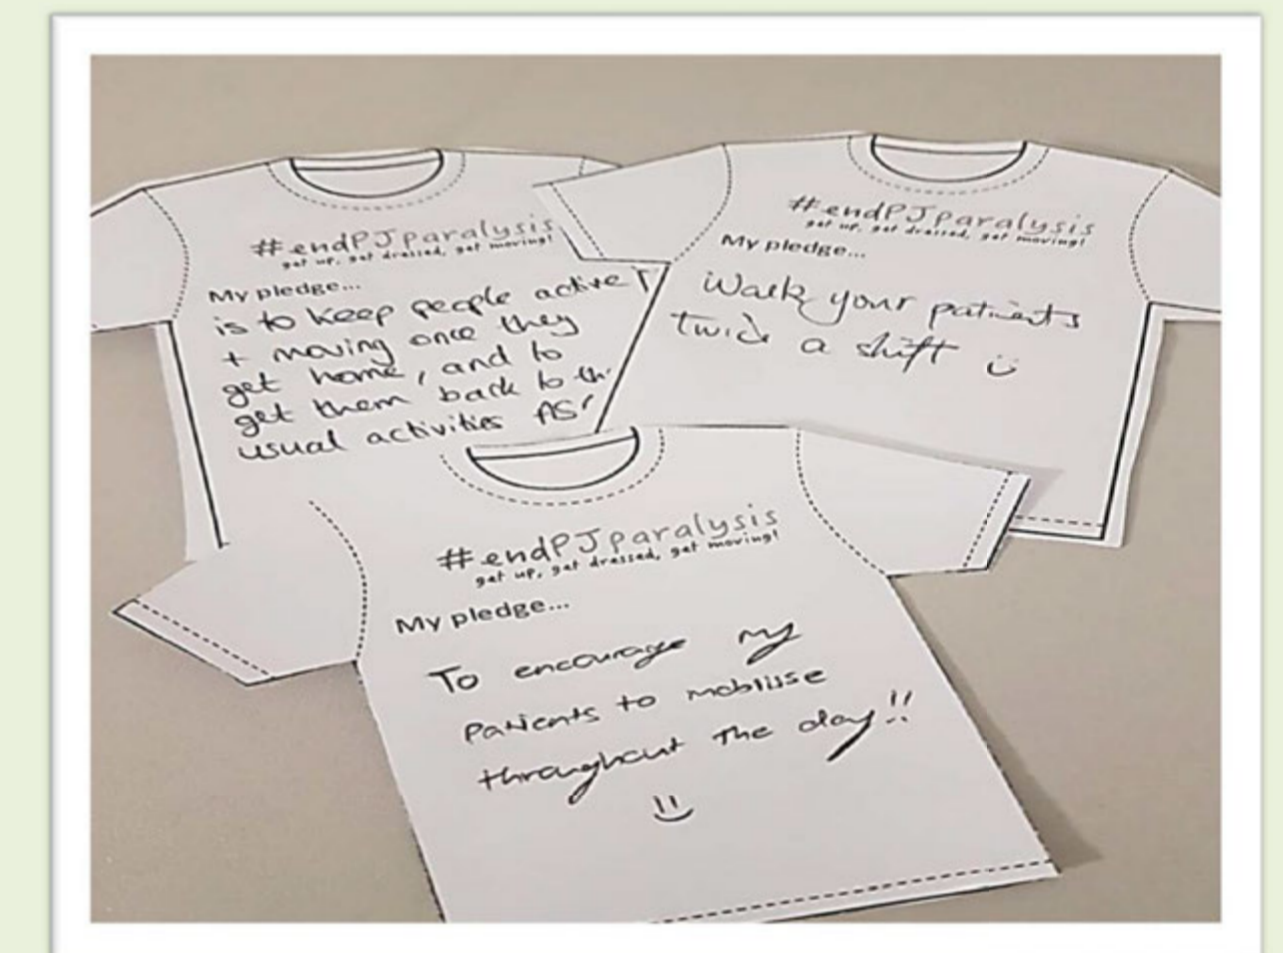 #endPJparalysis
get up, get dressed, get moving!
My pledge...
is to keep people active
+ moving once they
get home, and to
get them back to
usual activities
#endPJparalysis
get up, get dressed, get moving!
My pledge...
Walk your patients
twice a shift
#endPJparalysis
get up, get dressed, get moving!
My pledge...
To encourage my
patients to moblisse
throughout the day!!